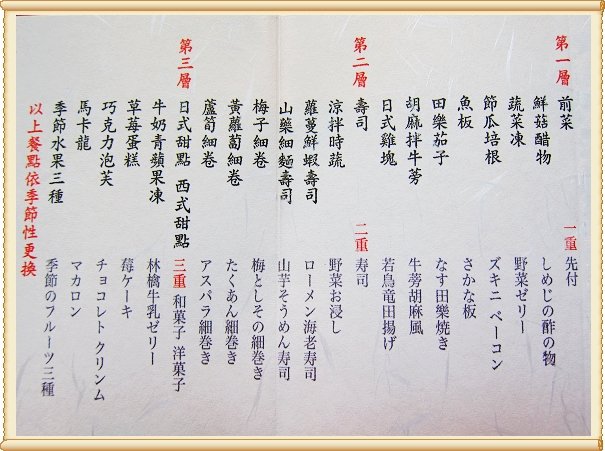 第一層
前菜
鮮菇醋物
蔬菜凍
節瓜培根
魚板
田樂茄子
胡麻拌牛蒡
日式雞塊
第二層
壽司
涼拌時蔬
蘿蔓鮮蝦壽司
山藥細麵壽司
梅子細卷
黃蘿蔔細卷
蘆筍細卷
第三層
日式甜點 西式甜點
牛奶青蘋果凍
草莓蛋糕
巧克力泡芙
馬卡龍
季節水果三種
以上餐點依季節性更換
一重 先付
しめじの酢の物
野菜ゼリー
ズキニ ベーコン
さかな板
なす田樂焼き
牛蒡胡麻風
若鳥竜田揚げ
二重 寿司
野菜お浸し
ローメン海老寿司
山芋そうめん寿司
梅としその細巻き
たくあん細巻き
アスパラ細巻き
三重 和菓子 洋菓子
林檎牛乳ゼリー
莓ケーキ
チョコレト クリンム
マカロン
季節のフルーツ三種